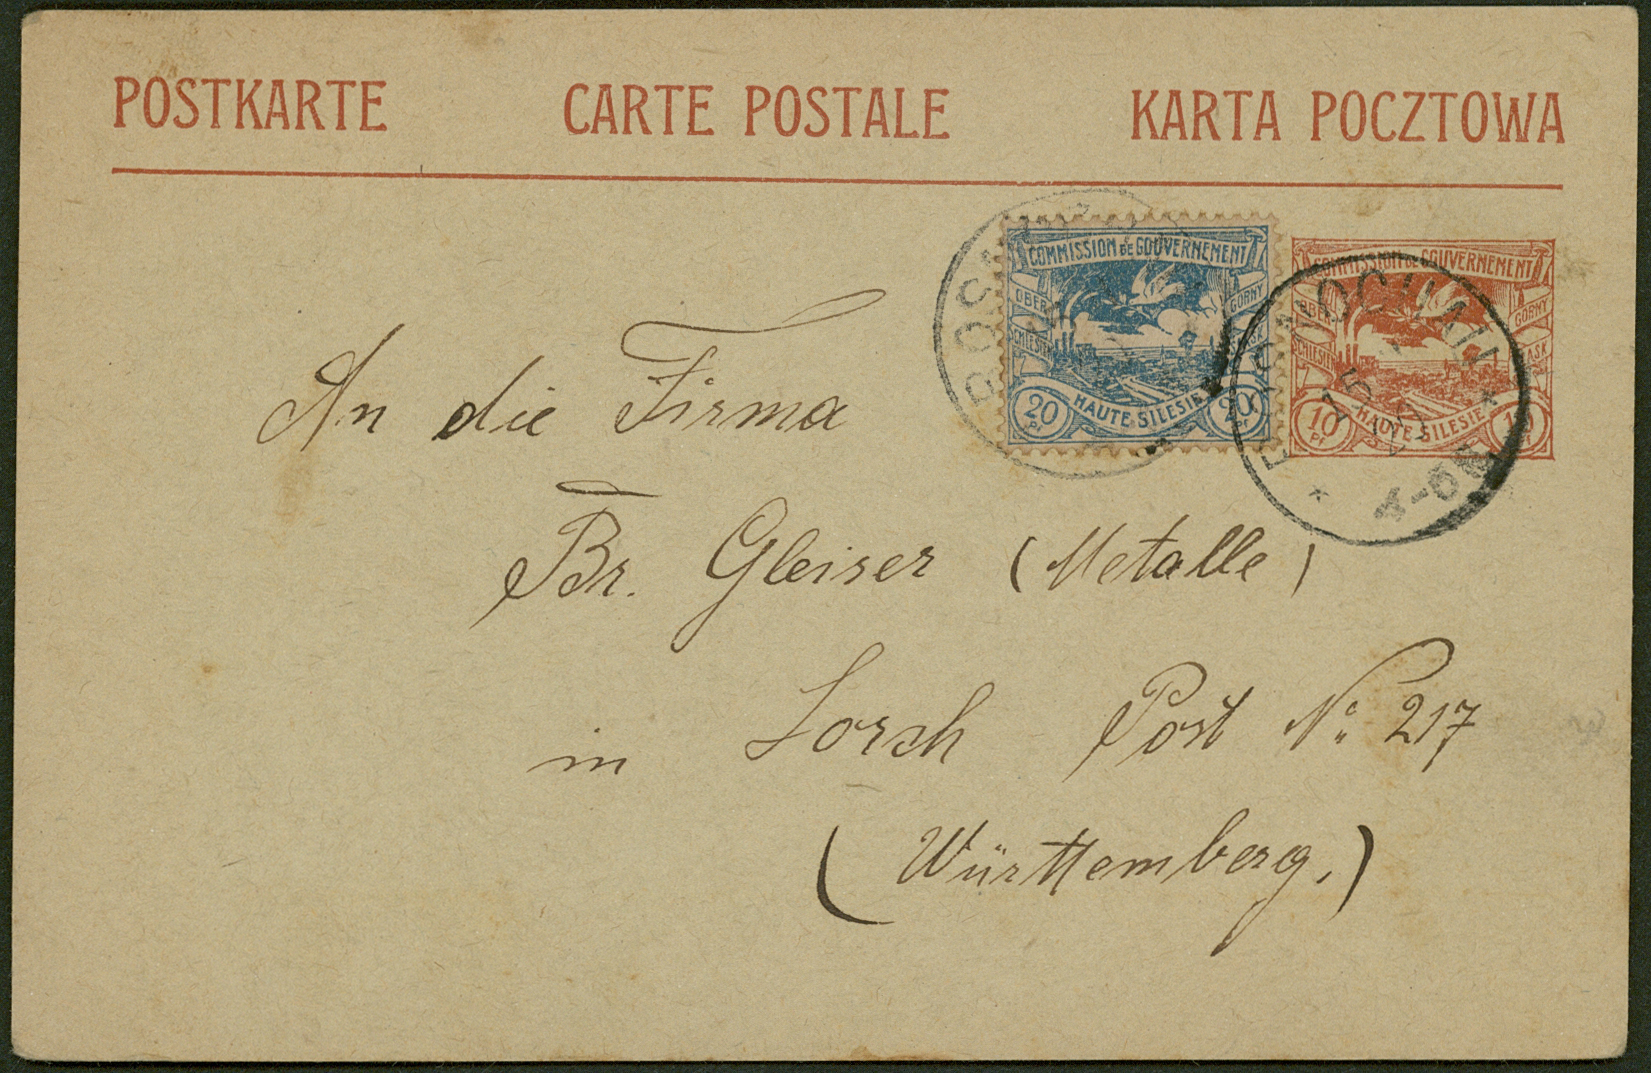 POSTKARTE CARTE POSTALE KARTA POCZTOWA
COMMISSION DE GOUVERNEMENT
OBER GORNY
SCHLESIEN
20 Pf HAUTE SILESIE 20 Pf
COMMISSION DE GOUVERNEMENT
OBER GORNY
SCHLESIEN
10 Pf HAUTE SILESIE 10
15
4-5N
An die Firma
Br. Gleiser (Metalle)
in Lorch Post No 217
(Württemberg.)